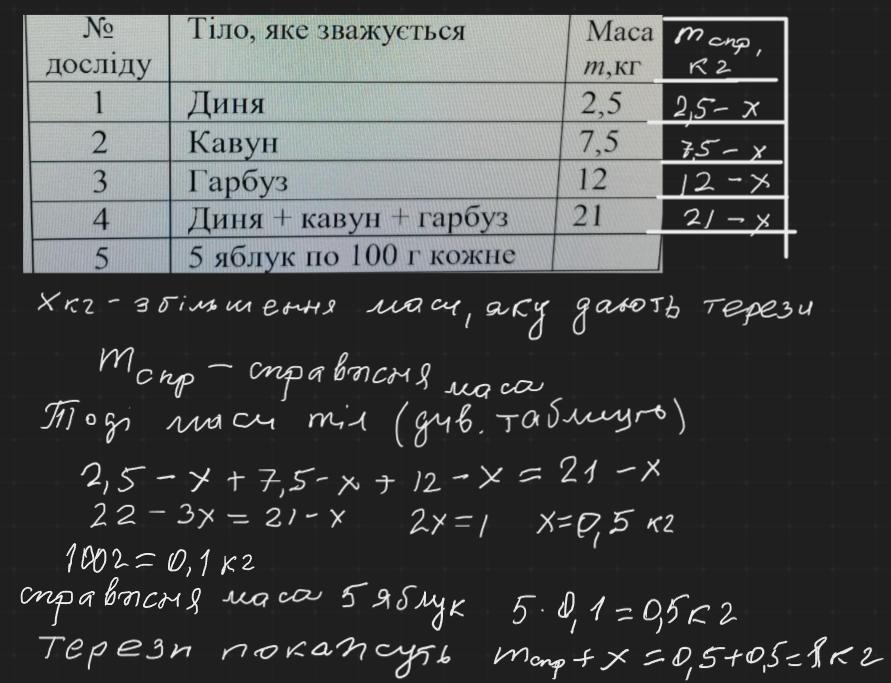 № досліду Тіло, яке зважується Маса m,кг m спр, кг
1 Диня 2,5 2,5 - x
2 Кавун 7,5 7,5 - x
3 Гарбуз 12 12 - x
4 Диня + кавун + гарбуз 21 21 - x
5 5 яблук по 100 г кожне
x кг - збільшення маси, яку дають терези
m спр - справжня маса
Тоді маси тіл (див. таблицю)
2,5 - x + 7,5 - x + 12 - x = 21 - x
22 - 3x = 21 - x 2x = 1 x = 0,5 кг
100г = 0,1 кг
справжня маса 5 яблук 5 · 0,1 = 0,5 кг
Терези покажуть m спр + x = 0,5 + 0,5 = 1 кг